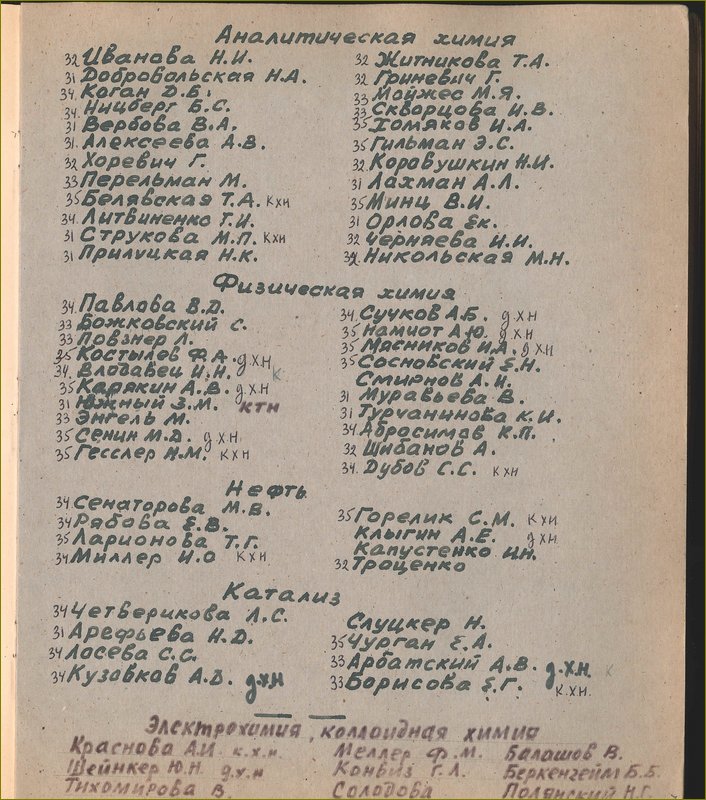 Аналитическая химия
32 Иванова Н.И.
31 Добровольская Н.А.
34. Коган Д.Б.
34. Ницберг Б.С.
31 Вербова В.А.
31. Алексеева А.В.
32 Хоревич Г.
33 Перельман М.
35 Белявская Т.А. кхн
34. Литвиненко Т.И.
31 Струкова М.П. кхн
31 Прилуцкая Н.К.
32 Житникова Т.А.
32 Гриневич Г.
33 Мойжес М.Я.
33 Скворцова И.В.
35 Хомяков И.А.
35 Гильман Э.С.
32 Коровушкин Н.И.
31 Лахман А.Л.
35 Минц В.И.
31 Орлова Ек.
32 Черняева И.И.
Никольская М.Н.
Физическая химия
34. Павлова В.Д.
33 Божковский С.
33 Повзнер Л.
35 Костылев Ф.А. дхн
34. Влодавец И.Н. к
35 Карякин А.В. дхн
31 Южный З.М. ктн
33 Энгель М.
35 Сенин М.Д. дхн
35 Гесслер Н.М. кхн
34. Сучков А.Б. дхн
35 Намиот А.Ю. дхн
35 Мясников И.А. дхн
35 Сосновский Е.Н.
Смирнов А.И.
31 Муравьева В.
31 Турчанинова К.И.
34 Абросимов К.П.
32 Шибанов А.
34. Дубов С.С. кхн
Нефть
34. Сенаторова М.В.
34 Рябова Е.В.
35 Ларионова Т.Г.
34 Миллер И.О кхн
35 Горелик С.М. кхн
Клыгин А.Е. дхн
Капустенко И.Н.
32 Троценко
Катализ
34 Четверикова Л.С.
31 Арефьева Н.Д.
34 Лосева С.С.
34 Кузовков А.Д. д.хн
Слуцкер Н.
35 Чурган Е.А.
33 Арбатский А.В. д.х.н. к
33 Борисова Е.Г. к.хн.
Электрохимия, коллоидная химия
Краснова А.И к.х.н
Шейнкер Ю.Н. д.х.н
Тихомирова В.
Меллер Ф.М.
Конвиз Г.Л.
Солодова
Балашов В.
Беркенгейм Б.Б.
Полянский Н.Г.